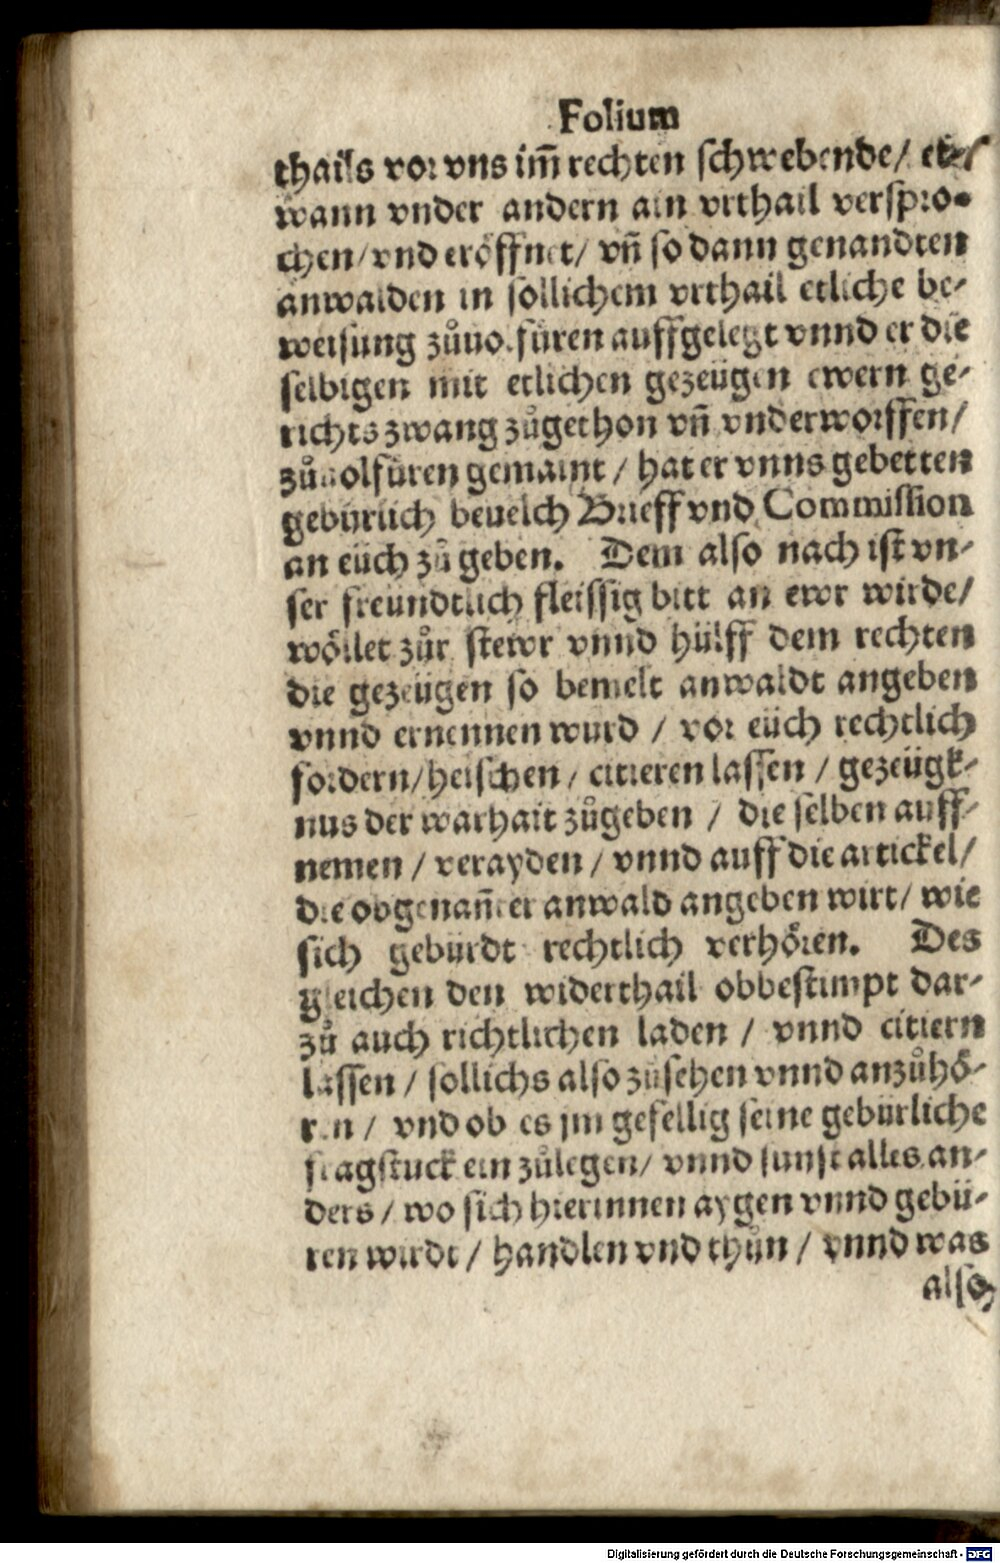 Folium
thails vor vns im̃ rechten schwebende/ et⸗
wann vnder andern ain vrthail verspro⸗
chen/vnd eröffnet/ vñ so dann genandten
anwalden in sollichem vrthail etliche be⸗
weisung zůuolfüren auffgelegt vnnd er die
selbigen mit etlichen gezeügen ewern ge⸗
richts zwang zůgethon vñ vnderworffen/
zůuolfüren gemaint / hat er vnns gebetten
gebürlich beuelch Brieff vnd Commission
an eüch zů geben. Dem also nach ist vn⸗
ser freundtlich fleissig bitt an ewr wirde/
wöllet zůr stewr vnnd hülff dem rechten
die gezeügen so bemelt anwaldt angeben
vnnd ernennen wurd / vor eüch rechtlich
fordern/heischen / citieren lassen / gezeügk⸗
nus der warhait zůgeben / die selben auff⸗
nemen / verayden / vnnd auff die artickel/
die obgenañter anwald angeben wirt/ wie
sich gebürdt rechtlich verhören. Des
gleichen den widerthail obbestimpt dar⸗
zů auch richtlichen laden / vnnd citiern
lassen / sollichs also zůsehen vnnd anzůhö⸗
ren / vnd ob es jm gefellig seine gebürliche
fragstuck ein zůlegen/ vnnd sunst alles an⸗
ders / wo sich hierinnen aygen vnnd gebü⸗
ren wirdt / handlen vnd thůn / vnnd was
also
Digitalisierung gefördert durch die Deutsche Forschungsgemeinschaft - DFG